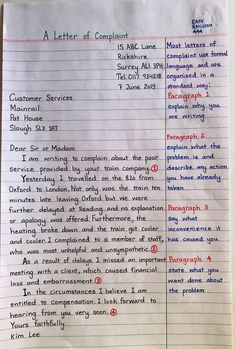 EASY
ENGLISH
444
A Letter of Complaint
15 ABC Lane
Rickshire
Surrey AL1 3PH
Tel. 0117 934218
7 June 2019
Customer Services
Mainrail
Pat House
Slough SLX 1RT
Dear Sir or Madam
I am writing to complain about the poor
service provided by your train company. 1
Yesterday I travelled on the 8.20 from
Oxford to London. Not only was the train ten
minutes late leaving Oxford but we were
further delayed at Reading, and no explanation
or apology was offered. Furthermore, the
heating broke down and the train got cooler
and cooler. I complained to a member of staff,
who was most unhelpful and unsympathetic. 2
As a result of delays I missed an important
meeting with a client, which caused financial
loss and embarrassment. 3
In the circumstances I believe I am
entitled to compensation. I look forward to
hearing from you very soon. 4
Yours faithfully
Kim Lee
Most letters of
complaint use formal
language and are
organised in a
standard way:
Paragraph 1
explain why you
are writing
Paragraph 2
explain what the
problem is and
describe any action
you have already
taken
Paragraph 3
Say what
inconvenience it
has caused you
Paragraph 4
state what you
want done about
the problem